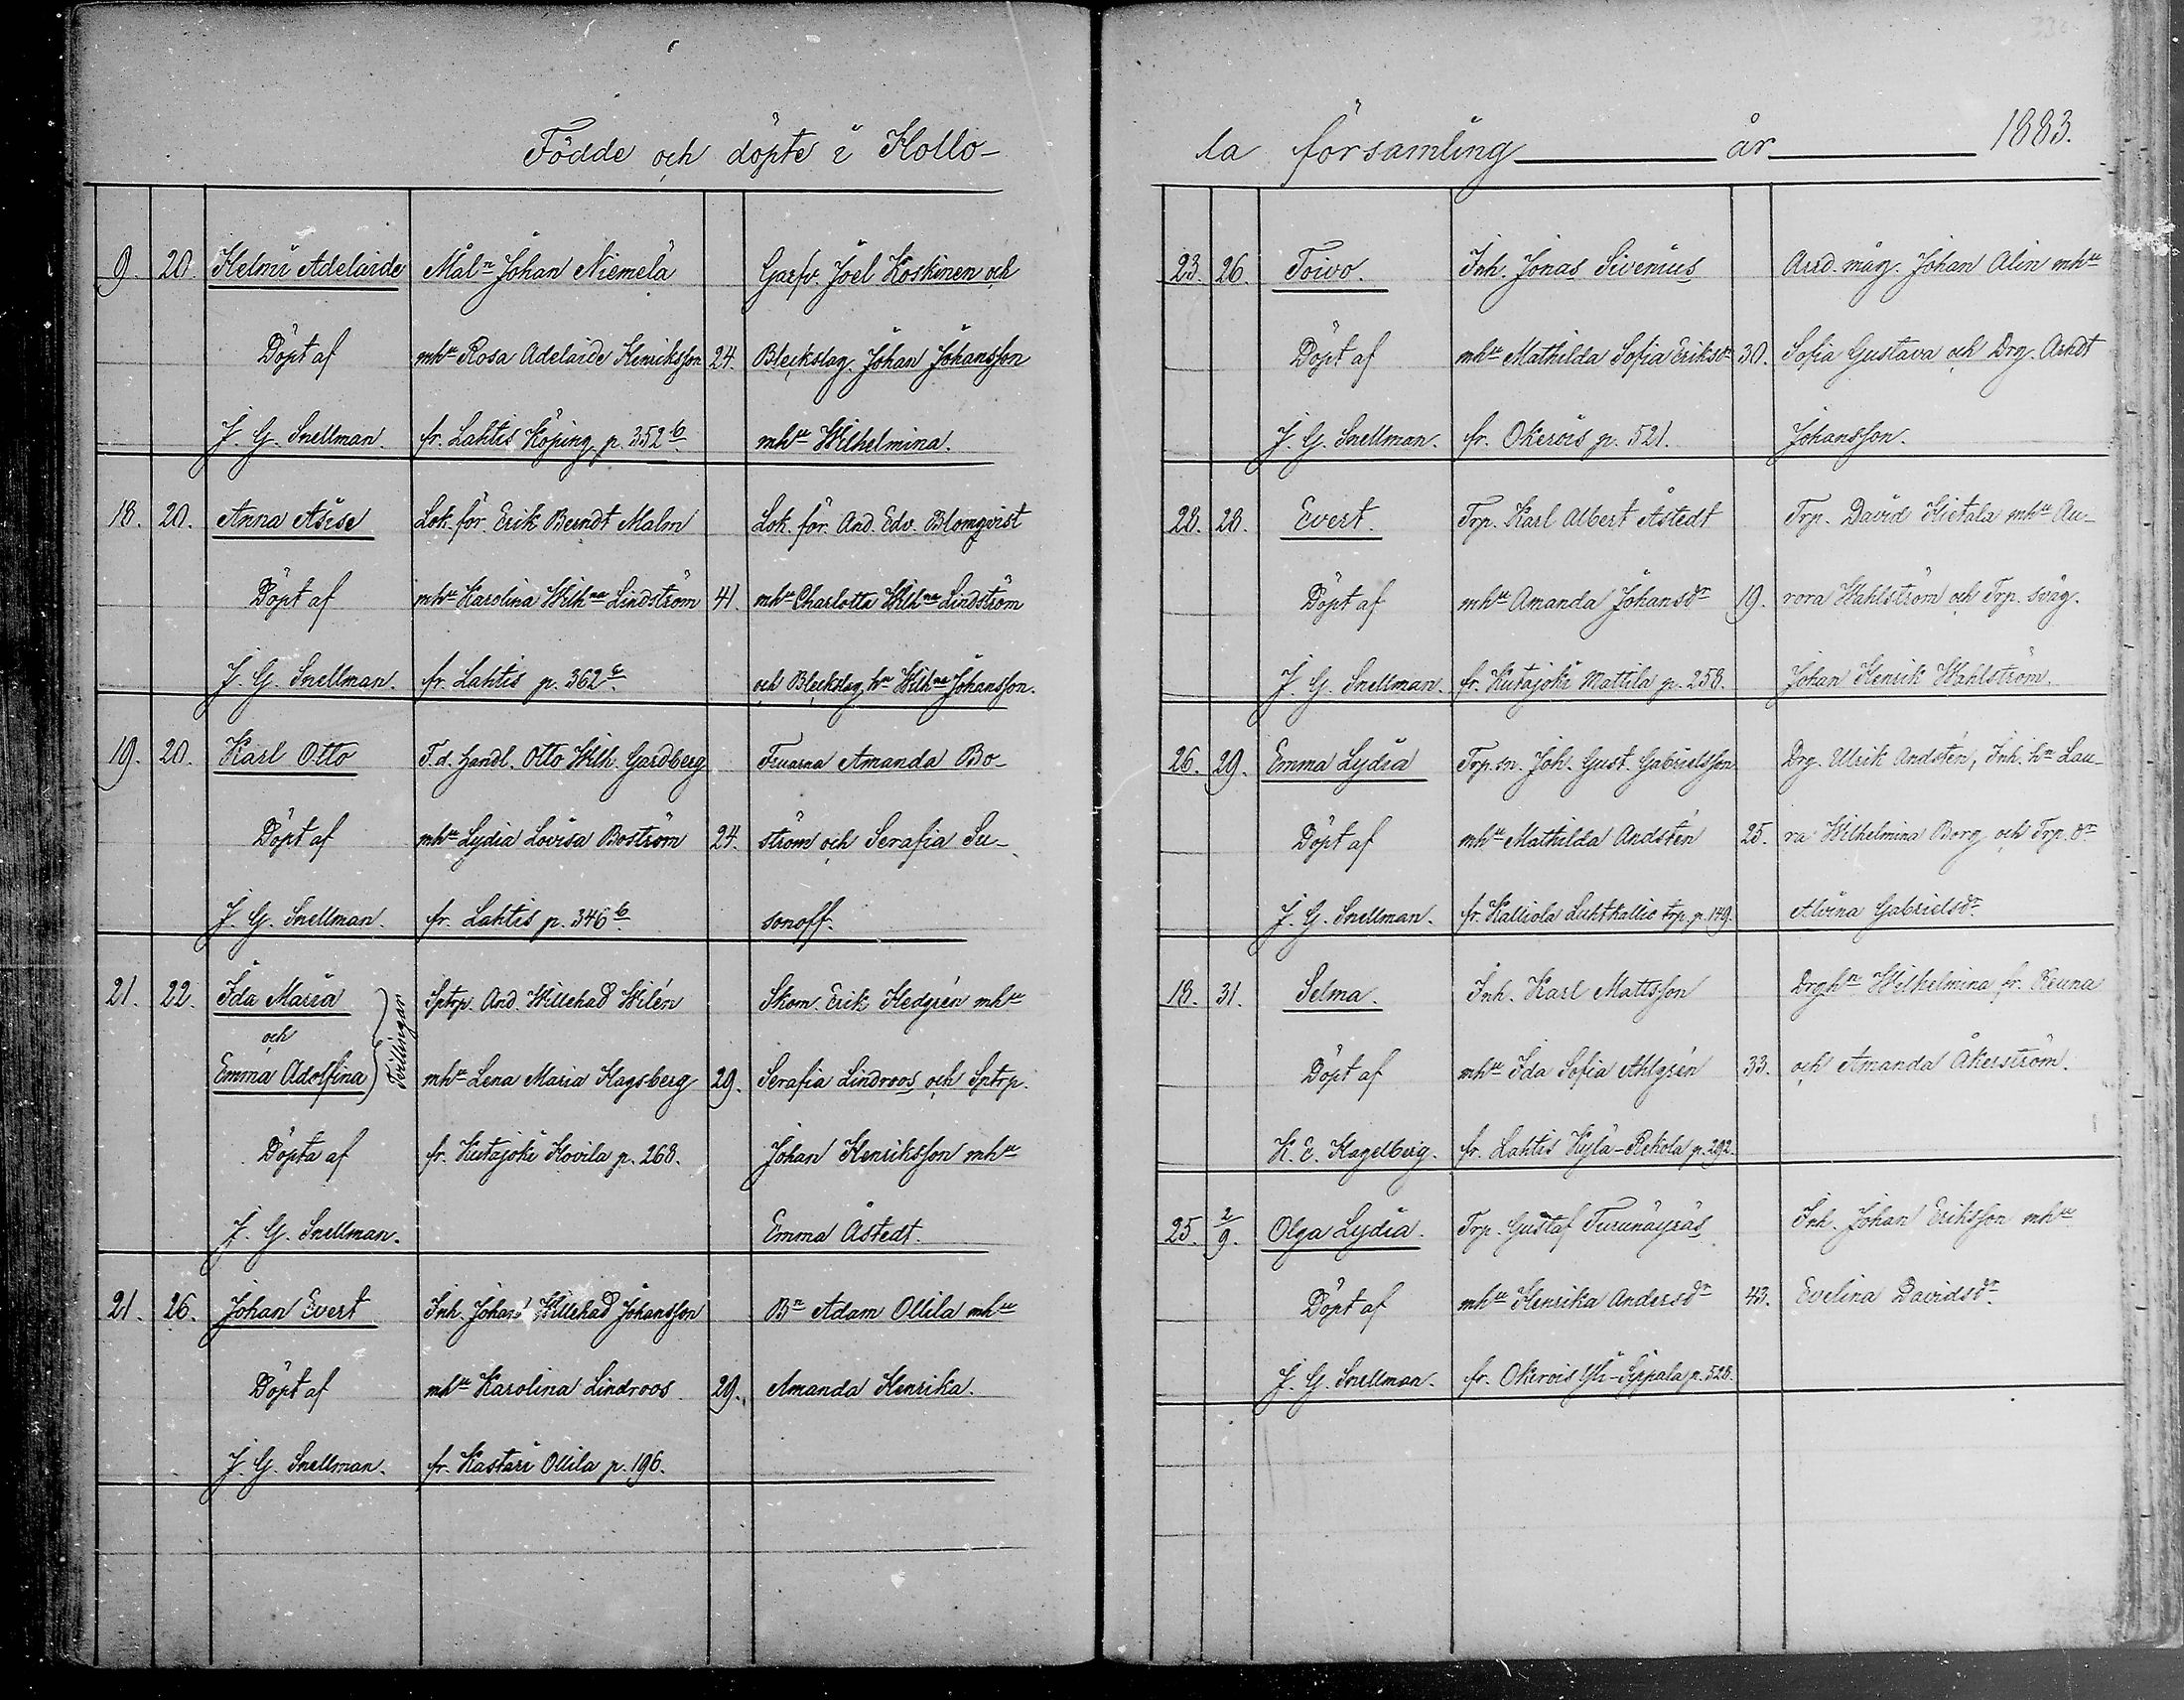 Födde och döpte i Hollo-
9. 20. Helmi Adelaide Mål^n Johan Niemelä Garfv. Joel Koskinen och
Döpt af mh^u Rosa Adelaide Henriksson 24. Bleckslag. Johan Johansson
J. G. Snellman. fr. Lahtis Köping, p. 352^b mh^u Wilhelmina.
18. 20. Anna Lok. för. Erik Berndt Malm Lok. för. And. Edv. Blomqvist
Döpt af mh^u Karolina Wilh^na Lindström 41. mh^u Charlotta Wilh^na Lindström
J. G. Snellman. fr. Lahtis p. 362 och Bleckslag. Wilh^na Johansson.
19. 20. Karl Otto F.d. Handl. Otto Wilh. Gardberg Fruarna Amanda Bo-
Döpt af mh^u Lydia Lovisa Boström 24. ström och Serafia Su-
J. G. Snellman. fr. Lahtis p. 346^b sonoff.
21. 22. Ida Maria Sptrp. And. Willehad Wilén Skom. Erik Hedgrén mh^u
och
Tvillingar
Emma Adolfina mh^u Lena Maria Hagsberg 29. Serafia Lindroos och Sptrp.
Döpta af fr. Kutajoki Hovila p. 268. Johan Henriksson mh^u
J. G. Snellman. Emma Åstedt.
21. 26. Johan Evert Inh. Johan Willehad Johansson B^n Adam Ollila mh^u
Döpt af mh^u Karolina Lindroos 29. Amanda Henrika.
J. G. Snellman. fr. Kastari Ollila p. 196.
la församling år 1883.
23. 26. Toivo. Inh. Jonas Sivenius Johan Alin mh^u
Döpt af mh^u Mathilda Sofia Eriksd^r 30. Sofia Gustava och Drg. Arndt
J. G. Snellman. fr. Okerois p. 521. Johansson.
28. 28. Evert. Trp. Karl Albert Åstedt Trp. David Hietala mh^u Au-
Döpt af mh^u Amanda Johansd^r 19. rora Wahlström och Trp. svåg.
J. G. Snellman. fr. Kutajoki Mattila p. 258. Johan Henrik Wahlström.
26. 29. Emma Lydia Trp. sn. Joh. Gust. Gabrielsson Drg. Ulrik Andstén, Inh. h^u Lau-
Döpt af mh^u Mathilda Andstén 25. ra Wilhelmina Borg och Trp. d^r
J. G. Snellman. fr. Kalliola trp. p. 149. Alvina Gabrielsd^r
18. 31. Selma. Inh. Karl Mattsson Drgh^u Wilhelmina fr. Reuna
Döpt af mh^u Ida Sofia Ahlgrén 33. och Amanda Åkerström.
K. E. Hagelberg. fr. Lahtis Kylä-Rekola p. 292.
25. 2/9. Olga Lydia. Trp. Gustaf Turunäyräs Inh. Johan Eriksson mh^u
Döpt af mh^u Henrika Andersd^r 43. Evelina Davidsd^r
J. G. Snellman. fr. Okerois Yli-Seppala p. 528.